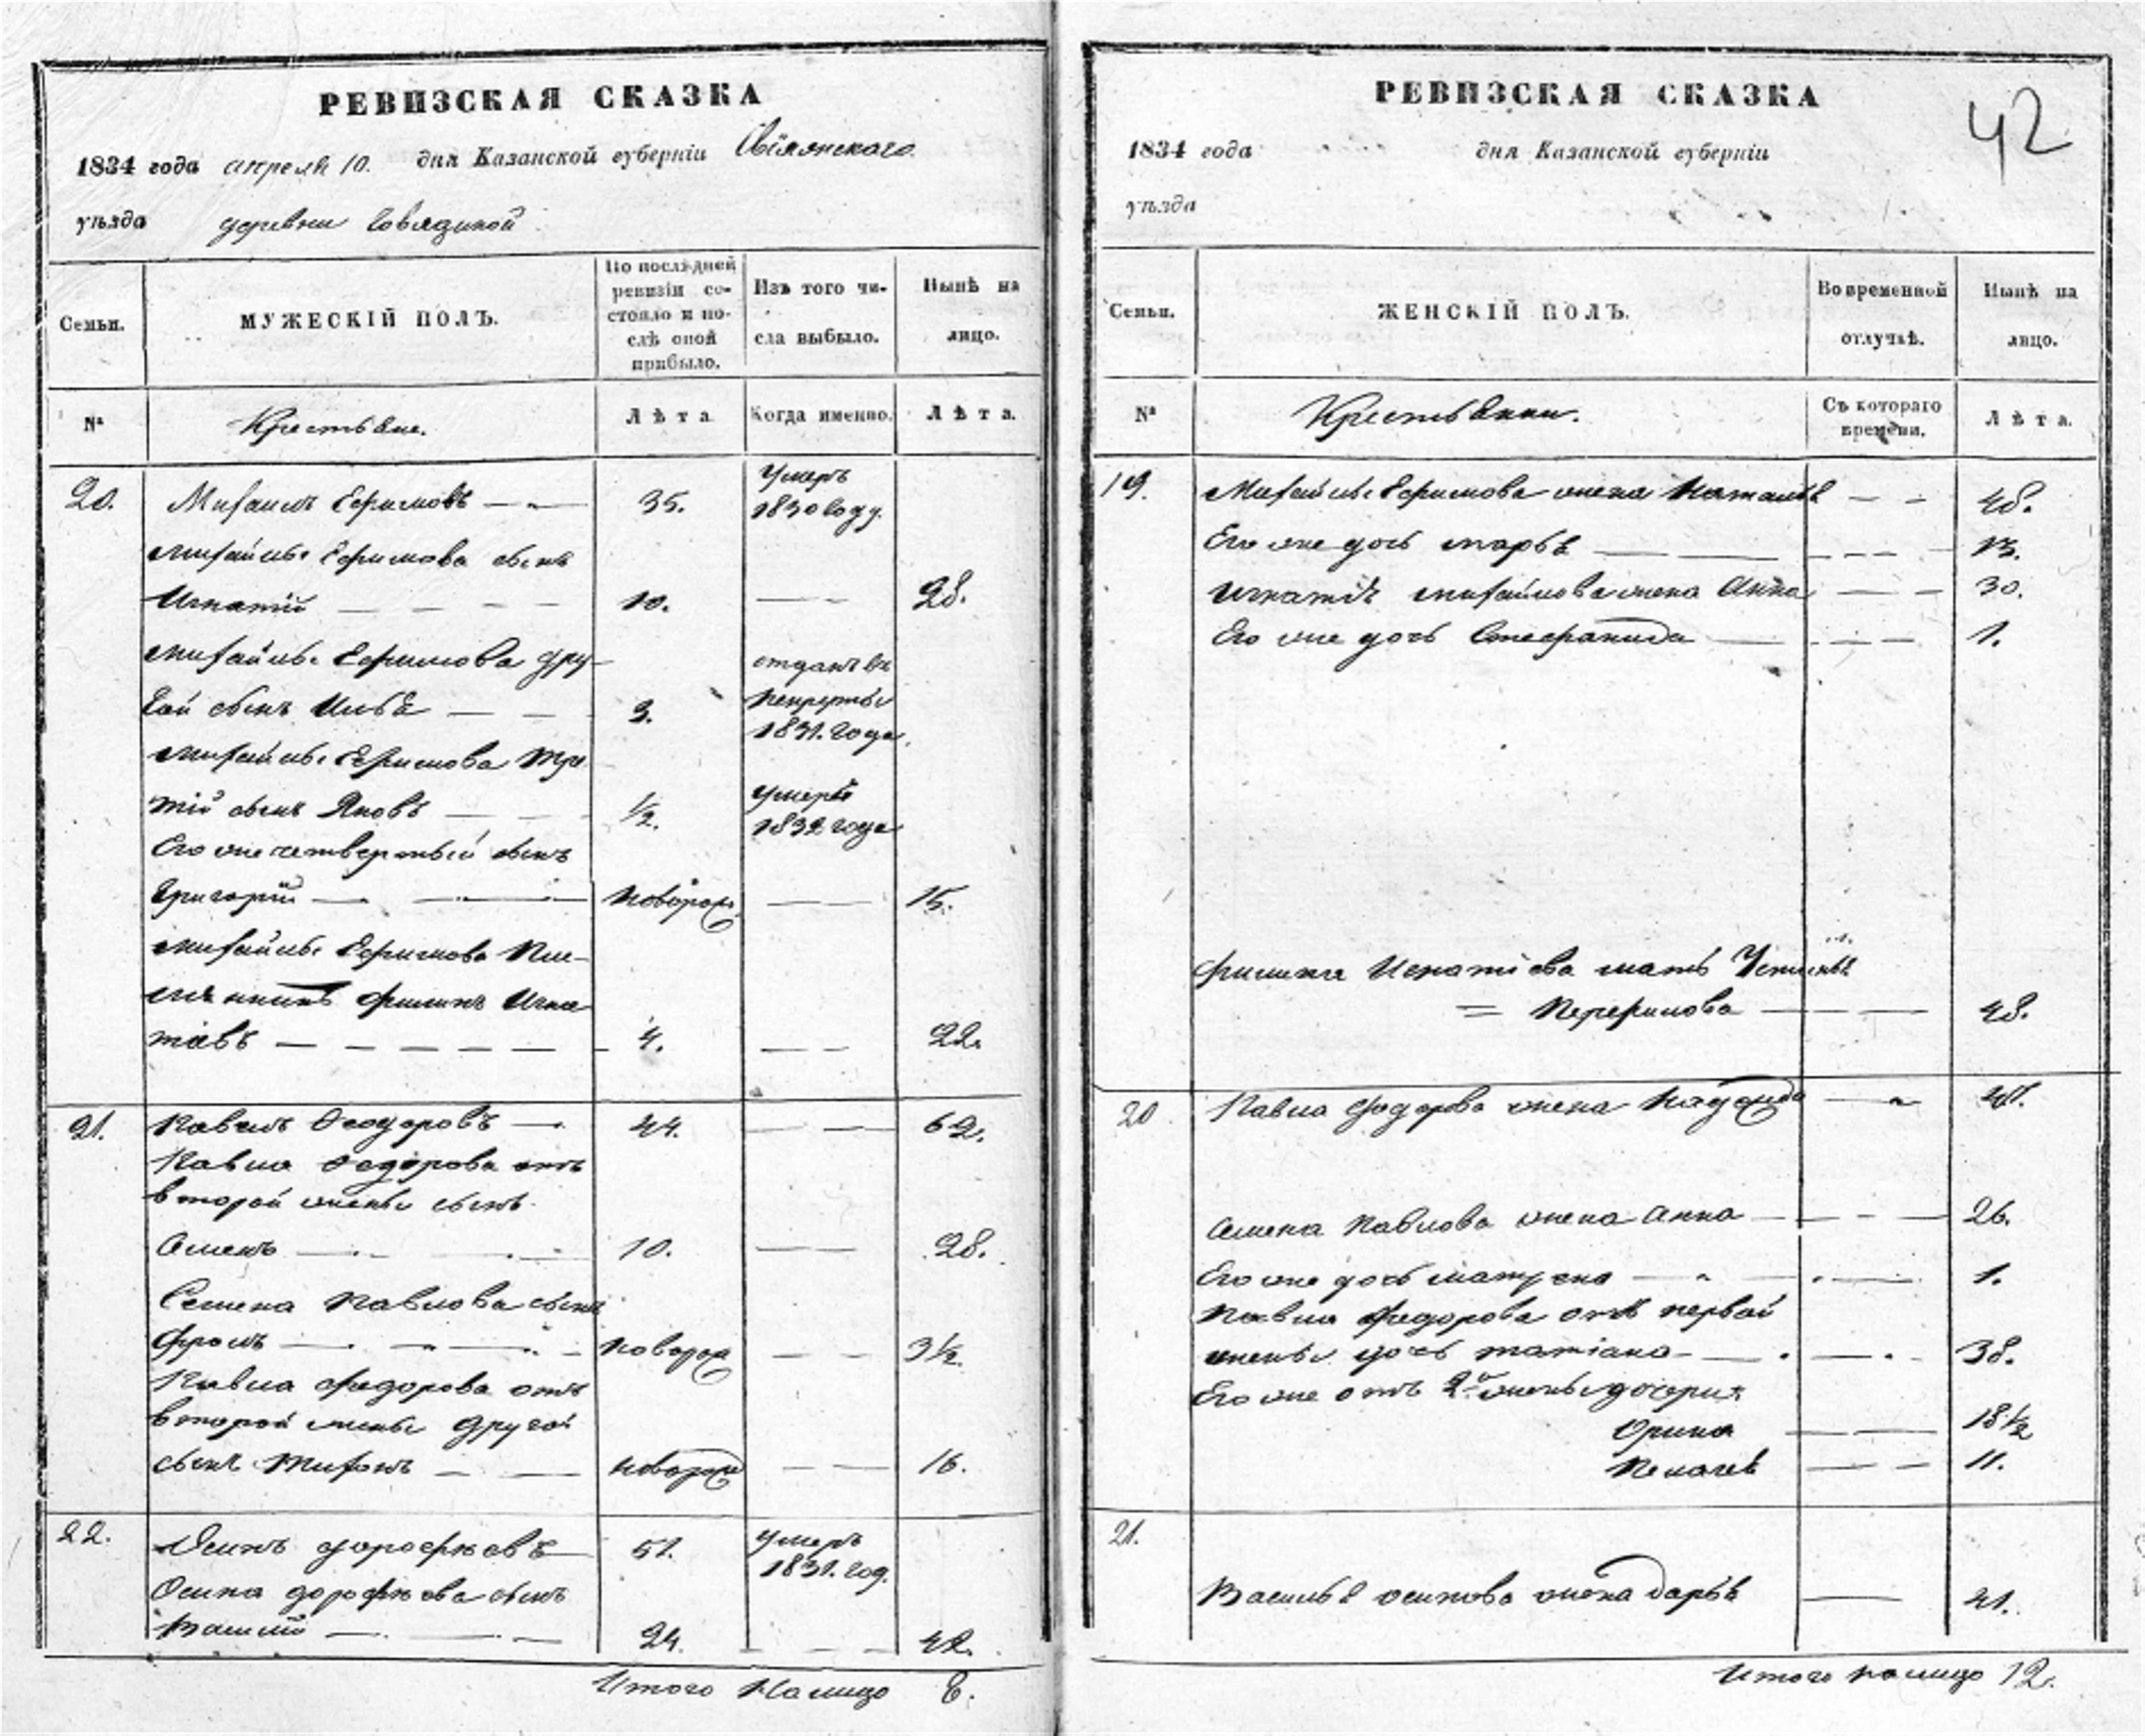 РЕВИЗСКАЯ СКАЗКА
1834 года апреля 10. дня Казанской губерніи Свіяжскаго
уѣзда деревни Говядиной
Семьи.
МУЖЕСКІЙ ПОЛЪ.
По послѣдней ревизіи со-
стояло и по-
слѣ оной
прибыло.
Изъ того чи-
сла выбыло.
Нынѣ на
лицо.
№
Крестьяне.
Лѣта
Когда именно.
Лѣта.
20. Михаилъ Ефимовъ 35. Умеръ
1830 году.
Михайлы Ефимова сынъ
Игнатій 10. 28.
Михайлы Ефимова дру-
гой сынъ Илья 3. отданъ въ
рекруты
1831. года.
Михайлы Ефимова тре
тій сынъ Яковъ 1/2. умеръ
1832 года
Его же четвертый сынъ
Григорій новорож. 15.
Михайлы Ефимова пле-
мянникъ Филипъ Игна
тьевъ 4. 22.
21. Павелъ Феодоровъ 44. 62.
Павла Федорова отъ
второй жены сынъ
Семенъ 10. 28.
Семена Павлова сынъ
Фролъ новорож 3 1/2.
Павла Федорова отъ
второй жены другой
сынъ Тихонъ новорож 16.
22. Осипъ Дорофѣевъ 51. умеръ
1831. год.
Осипа Дорофѣева сынъ
Василій 24. 42.
Итого налицо 8.
РЕВИЗСКАЯ СКАЗКА
42
1834 года дня Казанской губерніи
уѣзда
Семьи.
ЖЕНСКІЙ ПОЛЪ.
Во временной
отлучкѣ.
Нынѣ на
лицо.
№
Крестьянки.
Съ котораго
времени.
Лѣта.
19. Михайлы Ефимова жена Наталья 48.
Его же дочь Марья 13.
Игнатія Михайлова жена Анна 30.
Его же дочь Стефанида 1.
Филипа Игнатіева мать Устинья
Перфилова 48.
20 Павла Федорова жена Надежда 41.
Семена Павлова жена Анна 26.
Его же дочь Матрена 1.
Павла Федорова отъ первой
жены дочь Татіана 38.
Его же отъ 2й жены дочери:
Орина 18 1/2
Пелагея 11.
21.
Василья Осипова жена Дарья 41.
Итого налицо 12.